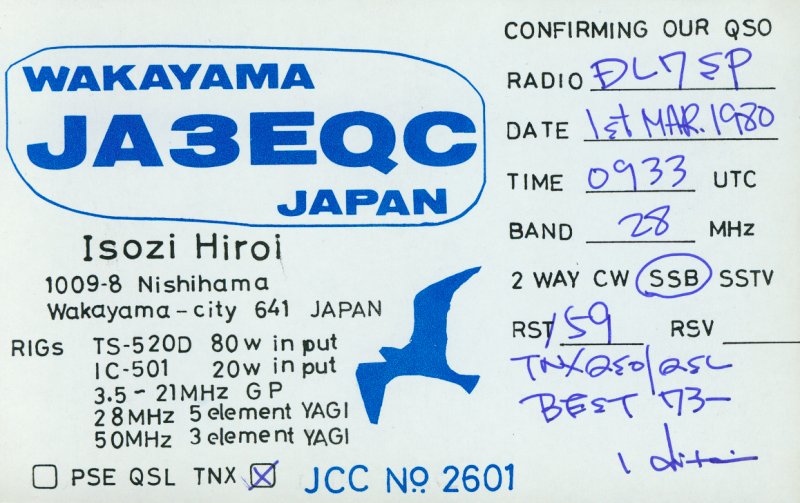 WAKAYAMA
JA3EQC
JAPAN
Isozi Hiroi
1009-8 Nishihama
Wakayama-city 641 JAPAN
RIGs TS-520D 80w in put
IC-501 20w in put
3.5-21MHz GP
28MHz 5 element YAGI
50MHz 3 element YAGI
PSE QSL TNX
JCC No 2601
CONFIRMING OUR QSO
RADIO DL7SP
DATE 1st MAR. 1980
TIME 0933 UTC
BAND 28 MHz
2 WAY CW SSB SSTV
RST 59 RSV
TNX QSO/QSL
BEST 73-